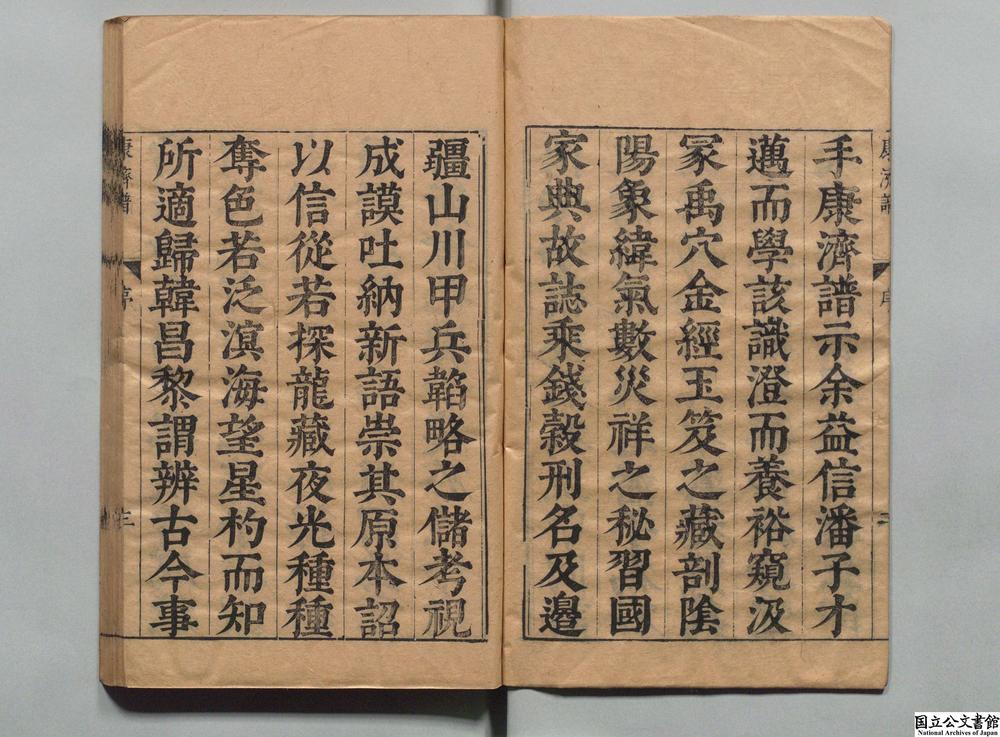 手康濟譜示余益信潘子才
邁而學該識澄而養裕窺汲
冢禹穴金經玉笈之藏剖陰
陽象緯氣數災祥之秘習國
家典故誌乘錢榖刑名及邉
疆山川甲兵韜略之儲考視
成謨吐納新語崇其原本詔
以信從若探龍藏夜光種種
奪色若泛溟海望星杓而知
所適歸韓昌黎謂辨古今事
康濟譜
序
三
国立公文書館
National Archives of Japan